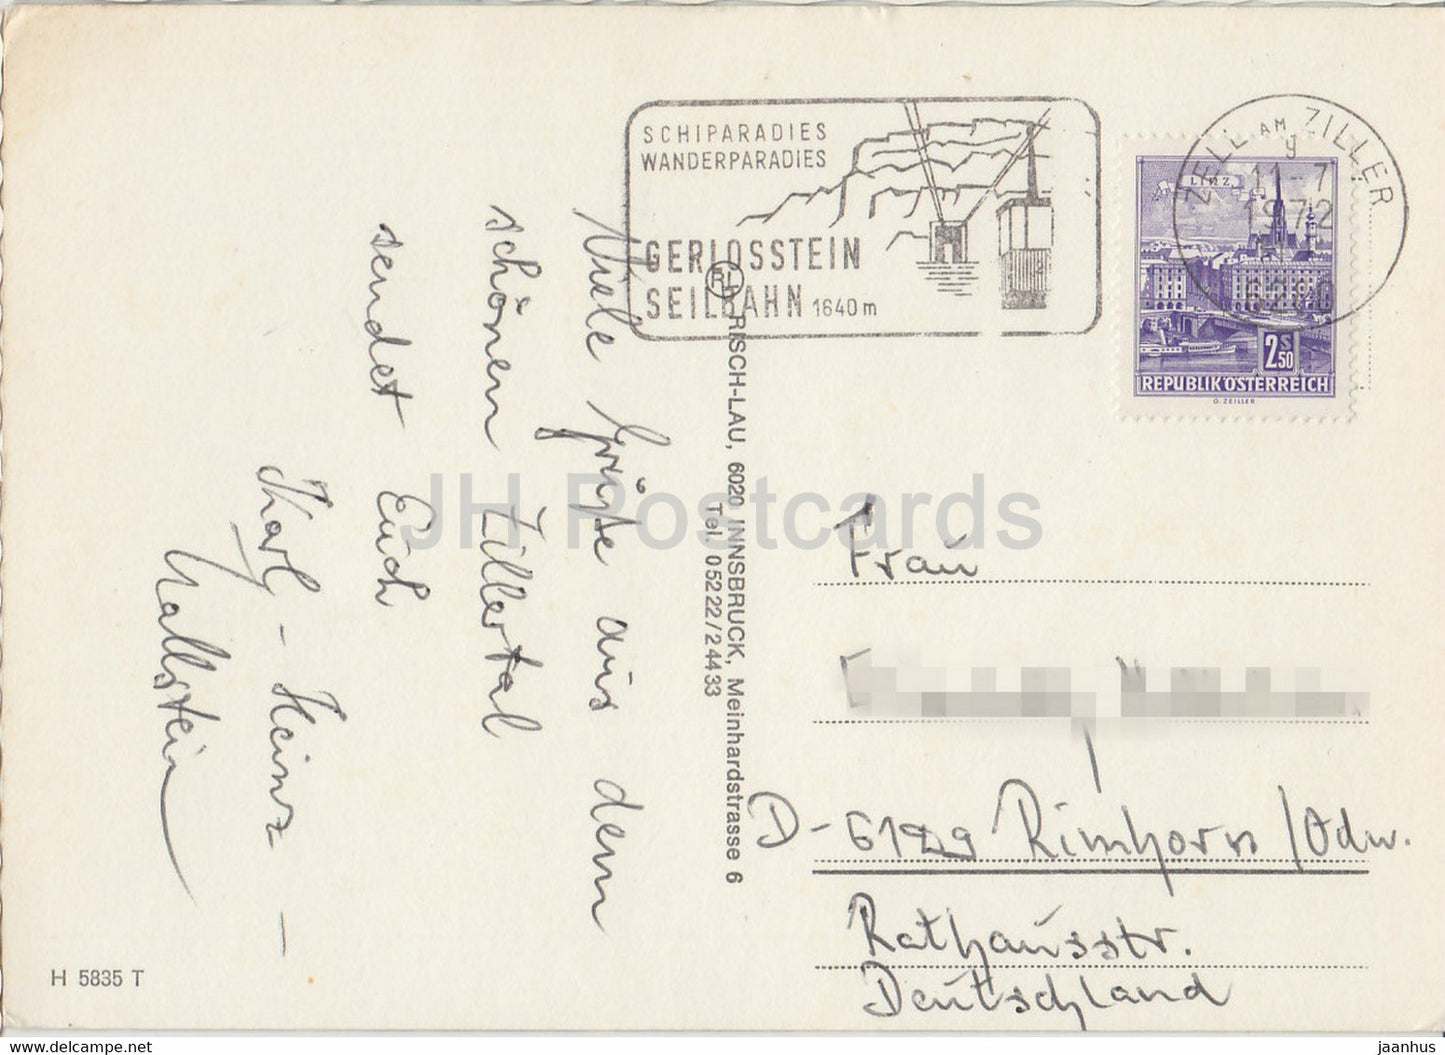 SCHIPARADIES
WANDERPARADIES
GERLOSSTEIN
SEILBAHN 1640 m
ZELL AM ZILLER
g
11-7
1972
6280
LINZ
2 S 50
REPUBLIK ÖSTERREICH
G. ZEILLER
Viele Grüße aus dem
schönen Zillertal
sendet Euch
Karl-Heinz -
Wallstein
RISCH-LAU, 6020 INNSBRUCK, Meinhardstrasse 6
Tel. 05222/24433
Frau
D-6129 Rimhorn /Odw.
Rathausstr.
Deutschland
H 5835 T
JH Postcards
www.delcampe.net
jaanhus